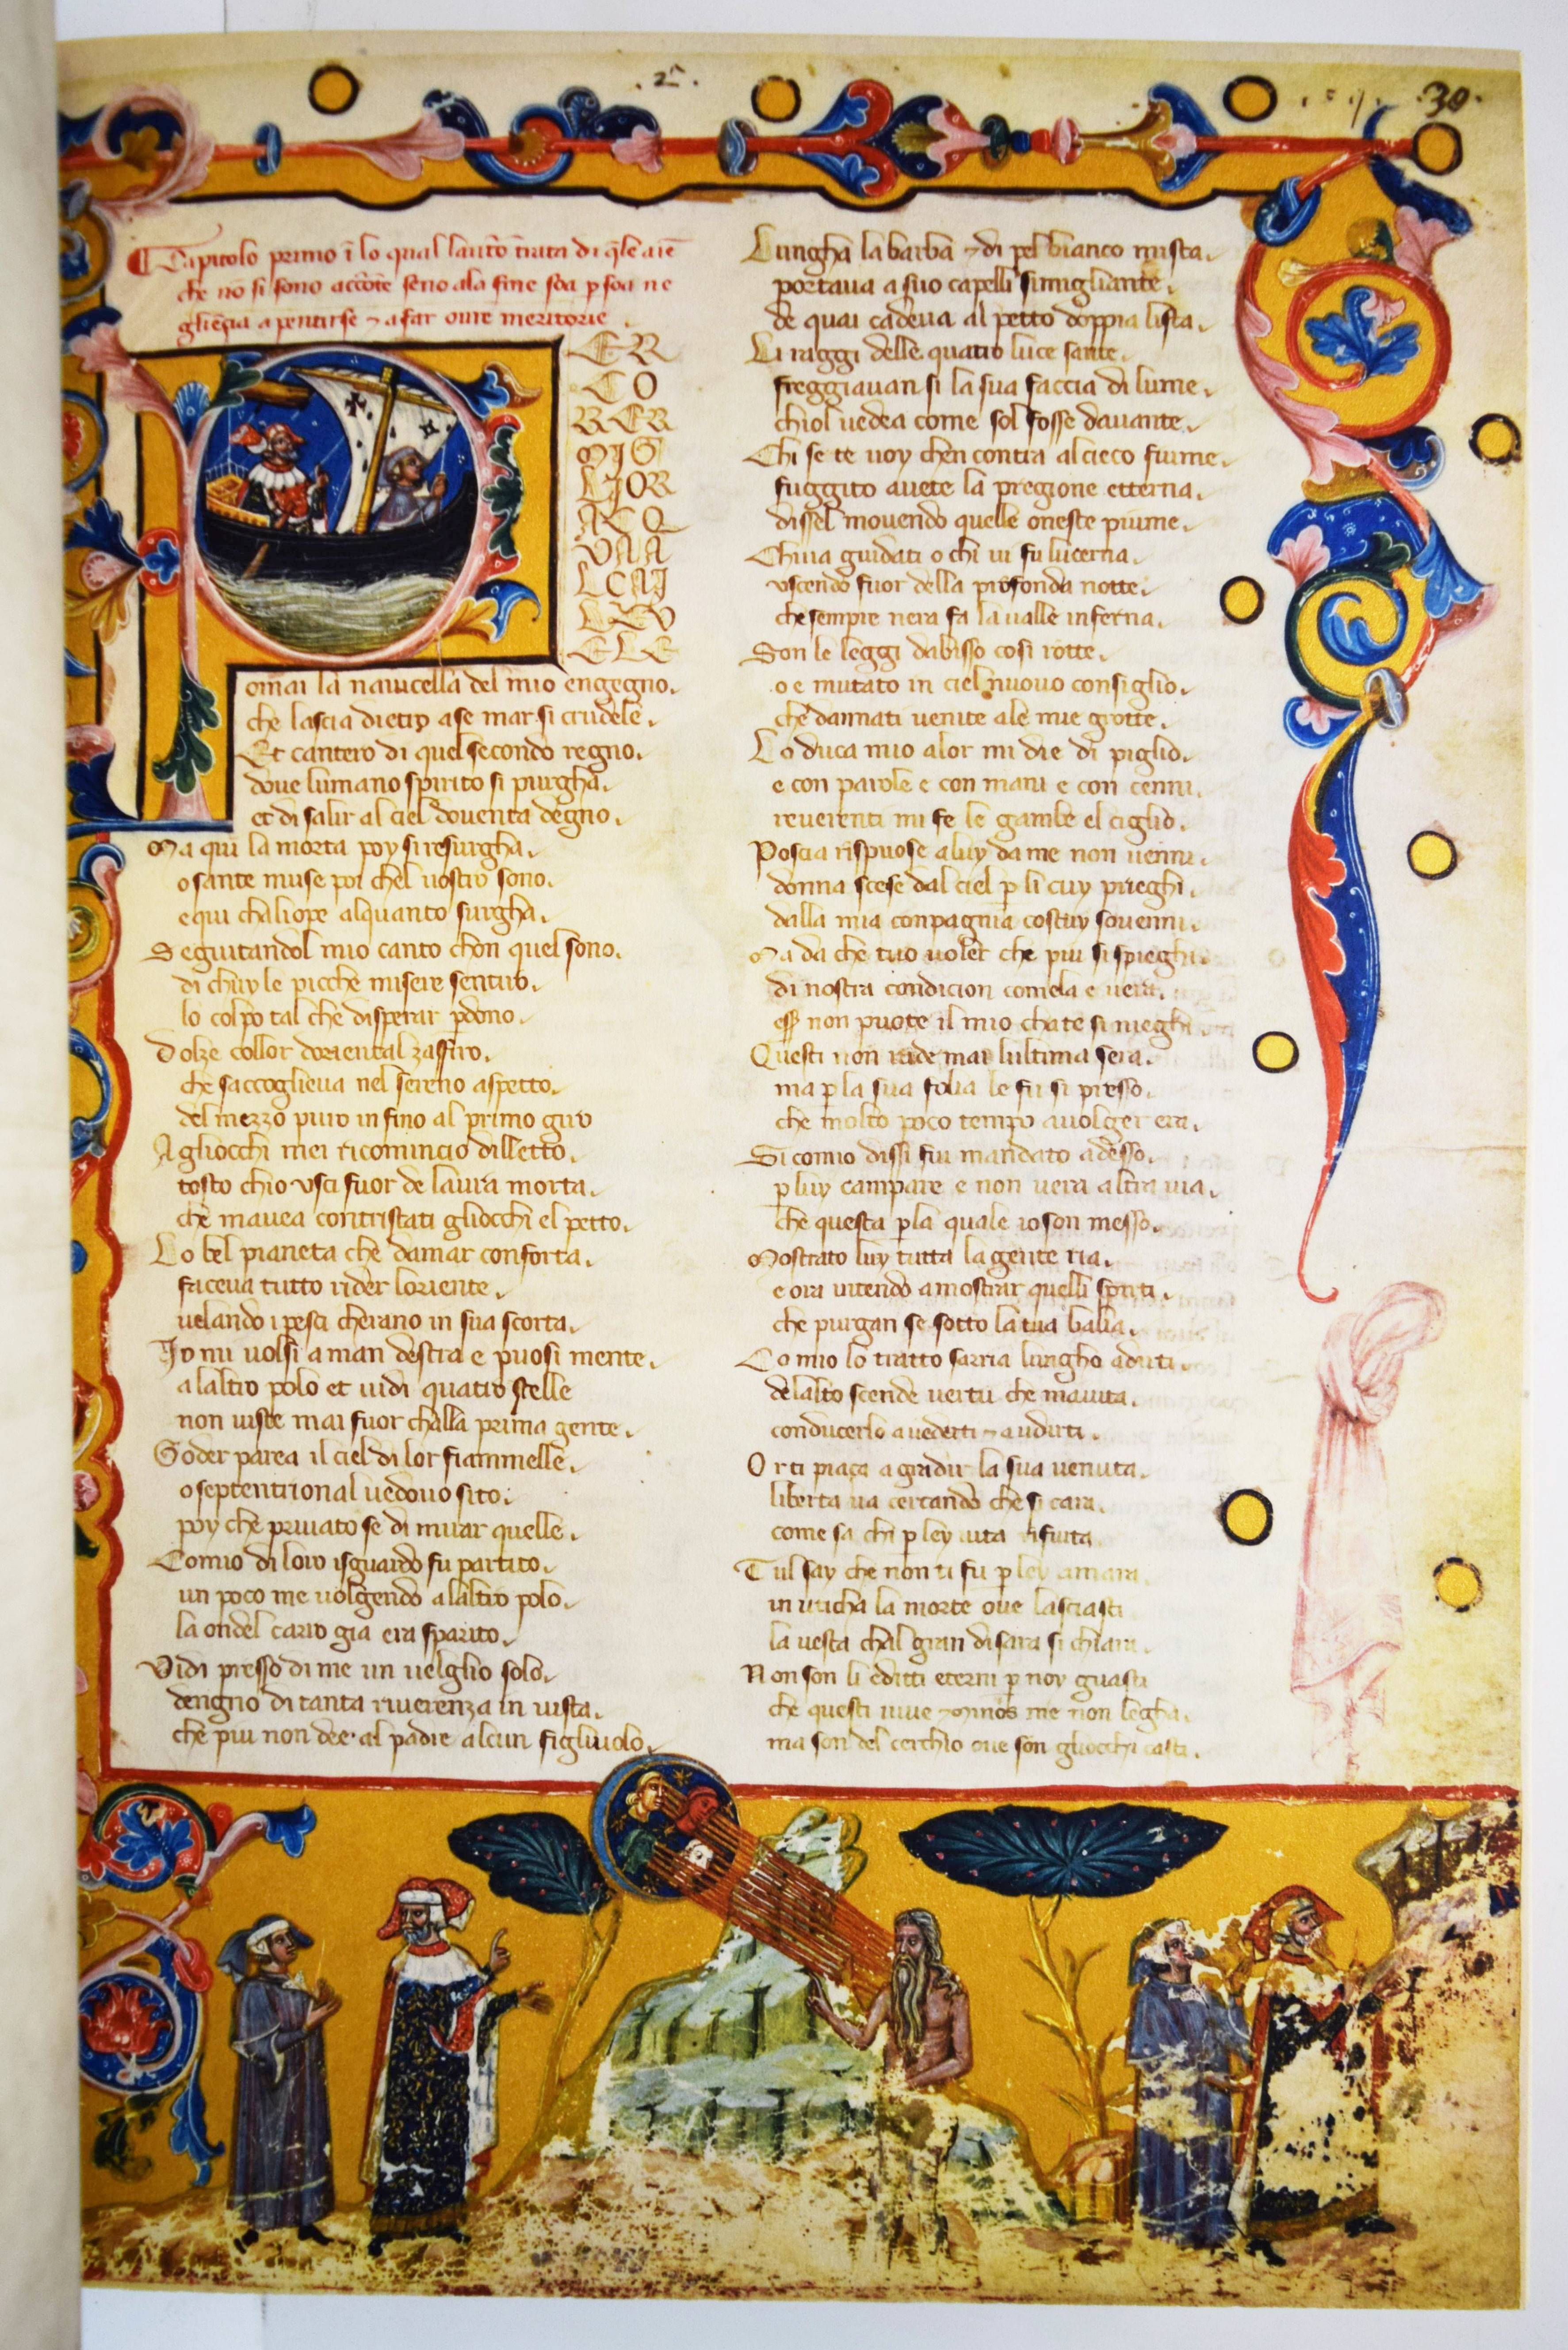 .2ⁿ.
.30.
Capitolo primo ĩ lo qual lauto tratа di q̃le aĩe
che no si sono
gliença a pentirse ⁊ a far ovre meritorie.
P
ER
CO
RER
MIG
LIOR
ACQ
VAA
LCAI
LEV
ELE
omai la navicella del mio engegno.
che lascia dietro a se mar si crudele.
Et cantero di quel secondo regno.
dove lumano spirito si purgha.
et di salir al ciel doventa degno.
Ma qui la morta poy si resurgha.
o sante muse poi chel vostro sono.
e qui chaliope alquanto surgha.
Seguitandol mio canto chon quel sono.
di chuy le picche misere sentiro.
lo colpo tal che disperar pdono.
Dolze collor doriental zaffiro.
che saccoglieva nel sereno aspetto.
del mezzo puro in fino al primo giro
A gliocchi mei ricomincio dilletto.
tosto chio usci fuor de laura morta.
che mavea contristati gliocchi el petto.
Lo bel pianeta che damar conforta.
faceva tutto rider loriente.
velando i pesci cherano in sua scorta.
Jo mi volsi a man destra e puosi mente.
a laltro polo et vidi quatro stelle
non viste mai fuor challa prima gente.
Goder parea il ciel di lor fiammelle.
o septentrional vedovo sito.
poy che privato se di mirar quelle.
Comio di loro isguardo fu partito.
un poco me volgendo a laltro polo.
la ondel carro gia era sparito.
Vidi presso di me un velglio solo.
dengno di tanta riverenza in vista.
che piu non dee al padre alcun figliuolo.
Lungha la barba ⁊ di pel bianco mista.
portava a suo capelli simigliante.
de quai cadeva al petto doppia lista.
Li raggi delle quatro luce sante.
freggiavan si la sua faccia di lume.
chiol vedea come sol fosse davante.
Chi se te voy chen contra al cieco fiume.
fuggito avete la pregione etterna.
dissel movendo quelle oneste piume.
Chi va guidati o chi vi fu lucerna.
uscendo fuor della profonda notte.
che sempre nera fa la valle inferna.
Son le leggi dabisso cosi rotte.
o e mutato in ciel nuovo consiglio.
che dannati venite ale mie grotte.
Lo duca mio alor mi die di piglio.
e con parole e con mani e con cenni.
reverenti mi fe le gambe el ciglio.
Poscia rispuose a luy da me non venni.
donna scese dal ciel p li cuy prieghi.
dalla mia conpagnia costuy sovenni.
Ma da che tuo voler che piu si spieghi
di nostra condicion comela e vera.
non puote il mio cha te si nieghi
Questi non vide mai lultima sera.
ma p la sua folia le fu si presso.
che molto poco tempo a volger era.
Si comio dissi fui mandato adesso.
p luy campare e non vera altra via.
che questa p la quale io son messo.
Mostrato luy tutta la gente ria.
e ora intendo a mostrar quelli spirti.
che purgan se sotto la tua balia.
Comio lo tratto sarria lungho a dirti.
de lalto scende vertu che maiuta.
conducerlo a vederti ⁊ a udirti.
Or ti piaça a gradir la sua venuta.
liberta va cercando che si cara.
come sa chi p ley vita rifiuta
Tul say che non ti fu p ley amara
in uticha la morte ove lasciasti
la vesta chal gran di sara si chiara.
Non son li editti eterni p noy guasti
che questi vive ⁊ minos me non legha.
ma son del cerchio ove son gliocchi casti.